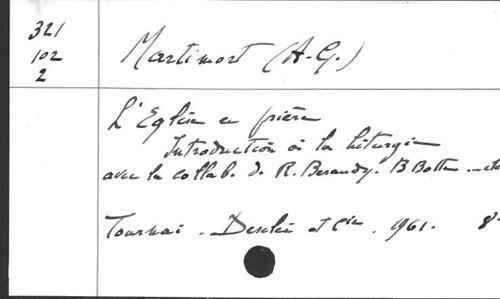 321
102
2
Martimort (A.-G.)
L'Eglise en prière
Introduction à la liturgie
avec la collab. de R. Beraudy. B Botte ... etc
Tournai. Desclée et Cie. 1961. 8°